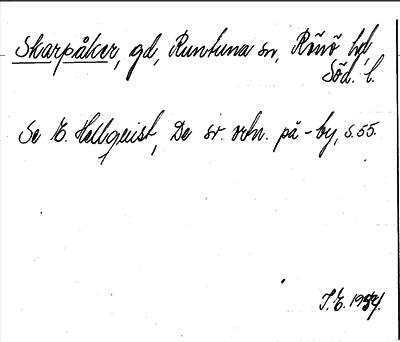 Skarpåker, gd, Runtuna sn, Rönö hd,
Söd. l.
Se E. Hellquist, De sv. ortn. på -by, s. 55.
I.E. 1954.